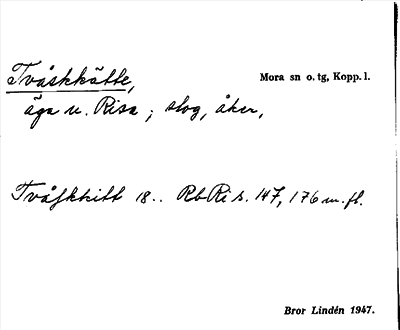 Tvåskkätte, Mora sn o. tg, Kopp. l.
äga u. Risa ; slog, åker,
Tvåskitt 18.. Rb Ri s. 147, 176 m. fl.
Bror Lindén 1947.